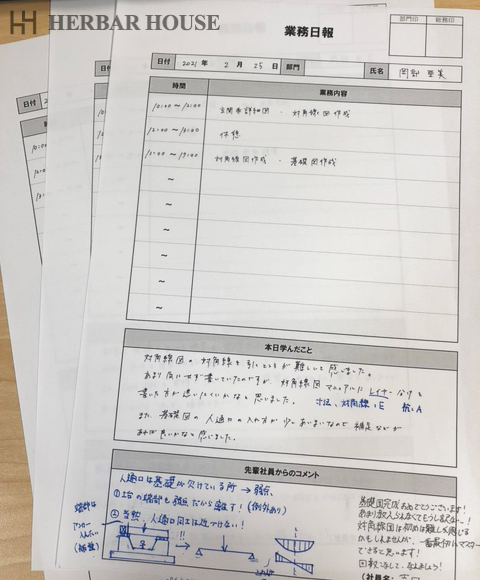 HERBAR HOUSE
業務日報
部門印 総務印
日付 2021 年 2 月 25 日 部門 氏名 岡部 亜美
時間 業務内容
10:00 〜 12:00 玄関 詳細図 ・ 対角線図作成
12:00 〜 13:00 休憩
13:00 〜 19:00 対角線図作成 ・ 基礎図作成
〜
〜
〜
〜
〜
〜
本日学んだこと
対角線図の 対角線を引くところが難しいと感じました。
あまり気にせず書いていたのですが、対角線図マニュアルに レイヤー分けも
書いた方が良いかなと思いました。 寸法、対角線:E
また、基礎図の 人通口の入れ方が少しあいまいなので 補足などが
あれば良いかなと感じました。
先輩社員からのコメント
人通口は基礎が欠けている所 → 弱点
①土台の端部も弱点だから離す! (例外あり)
② 当然、人通口同士は近づけない!
端部は
アンカー
入れたい
基礎図完成おめでとうございます!
対角線図は初めは難しく感じる
かもしれませんが、一番
できると思います!
(社員名: